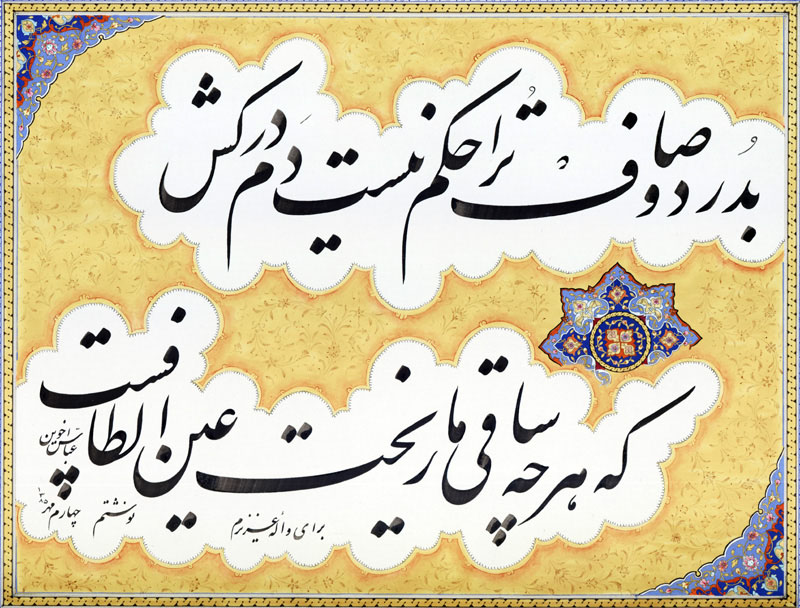 بدُرد و صاف تُرا حکم نیست دَم درکش
که هر چه ساقی ما ریخت عین الطافست
برای واله عزیزم نوشتم چهارم مهر ۱۳۸۵
عباس اخوین